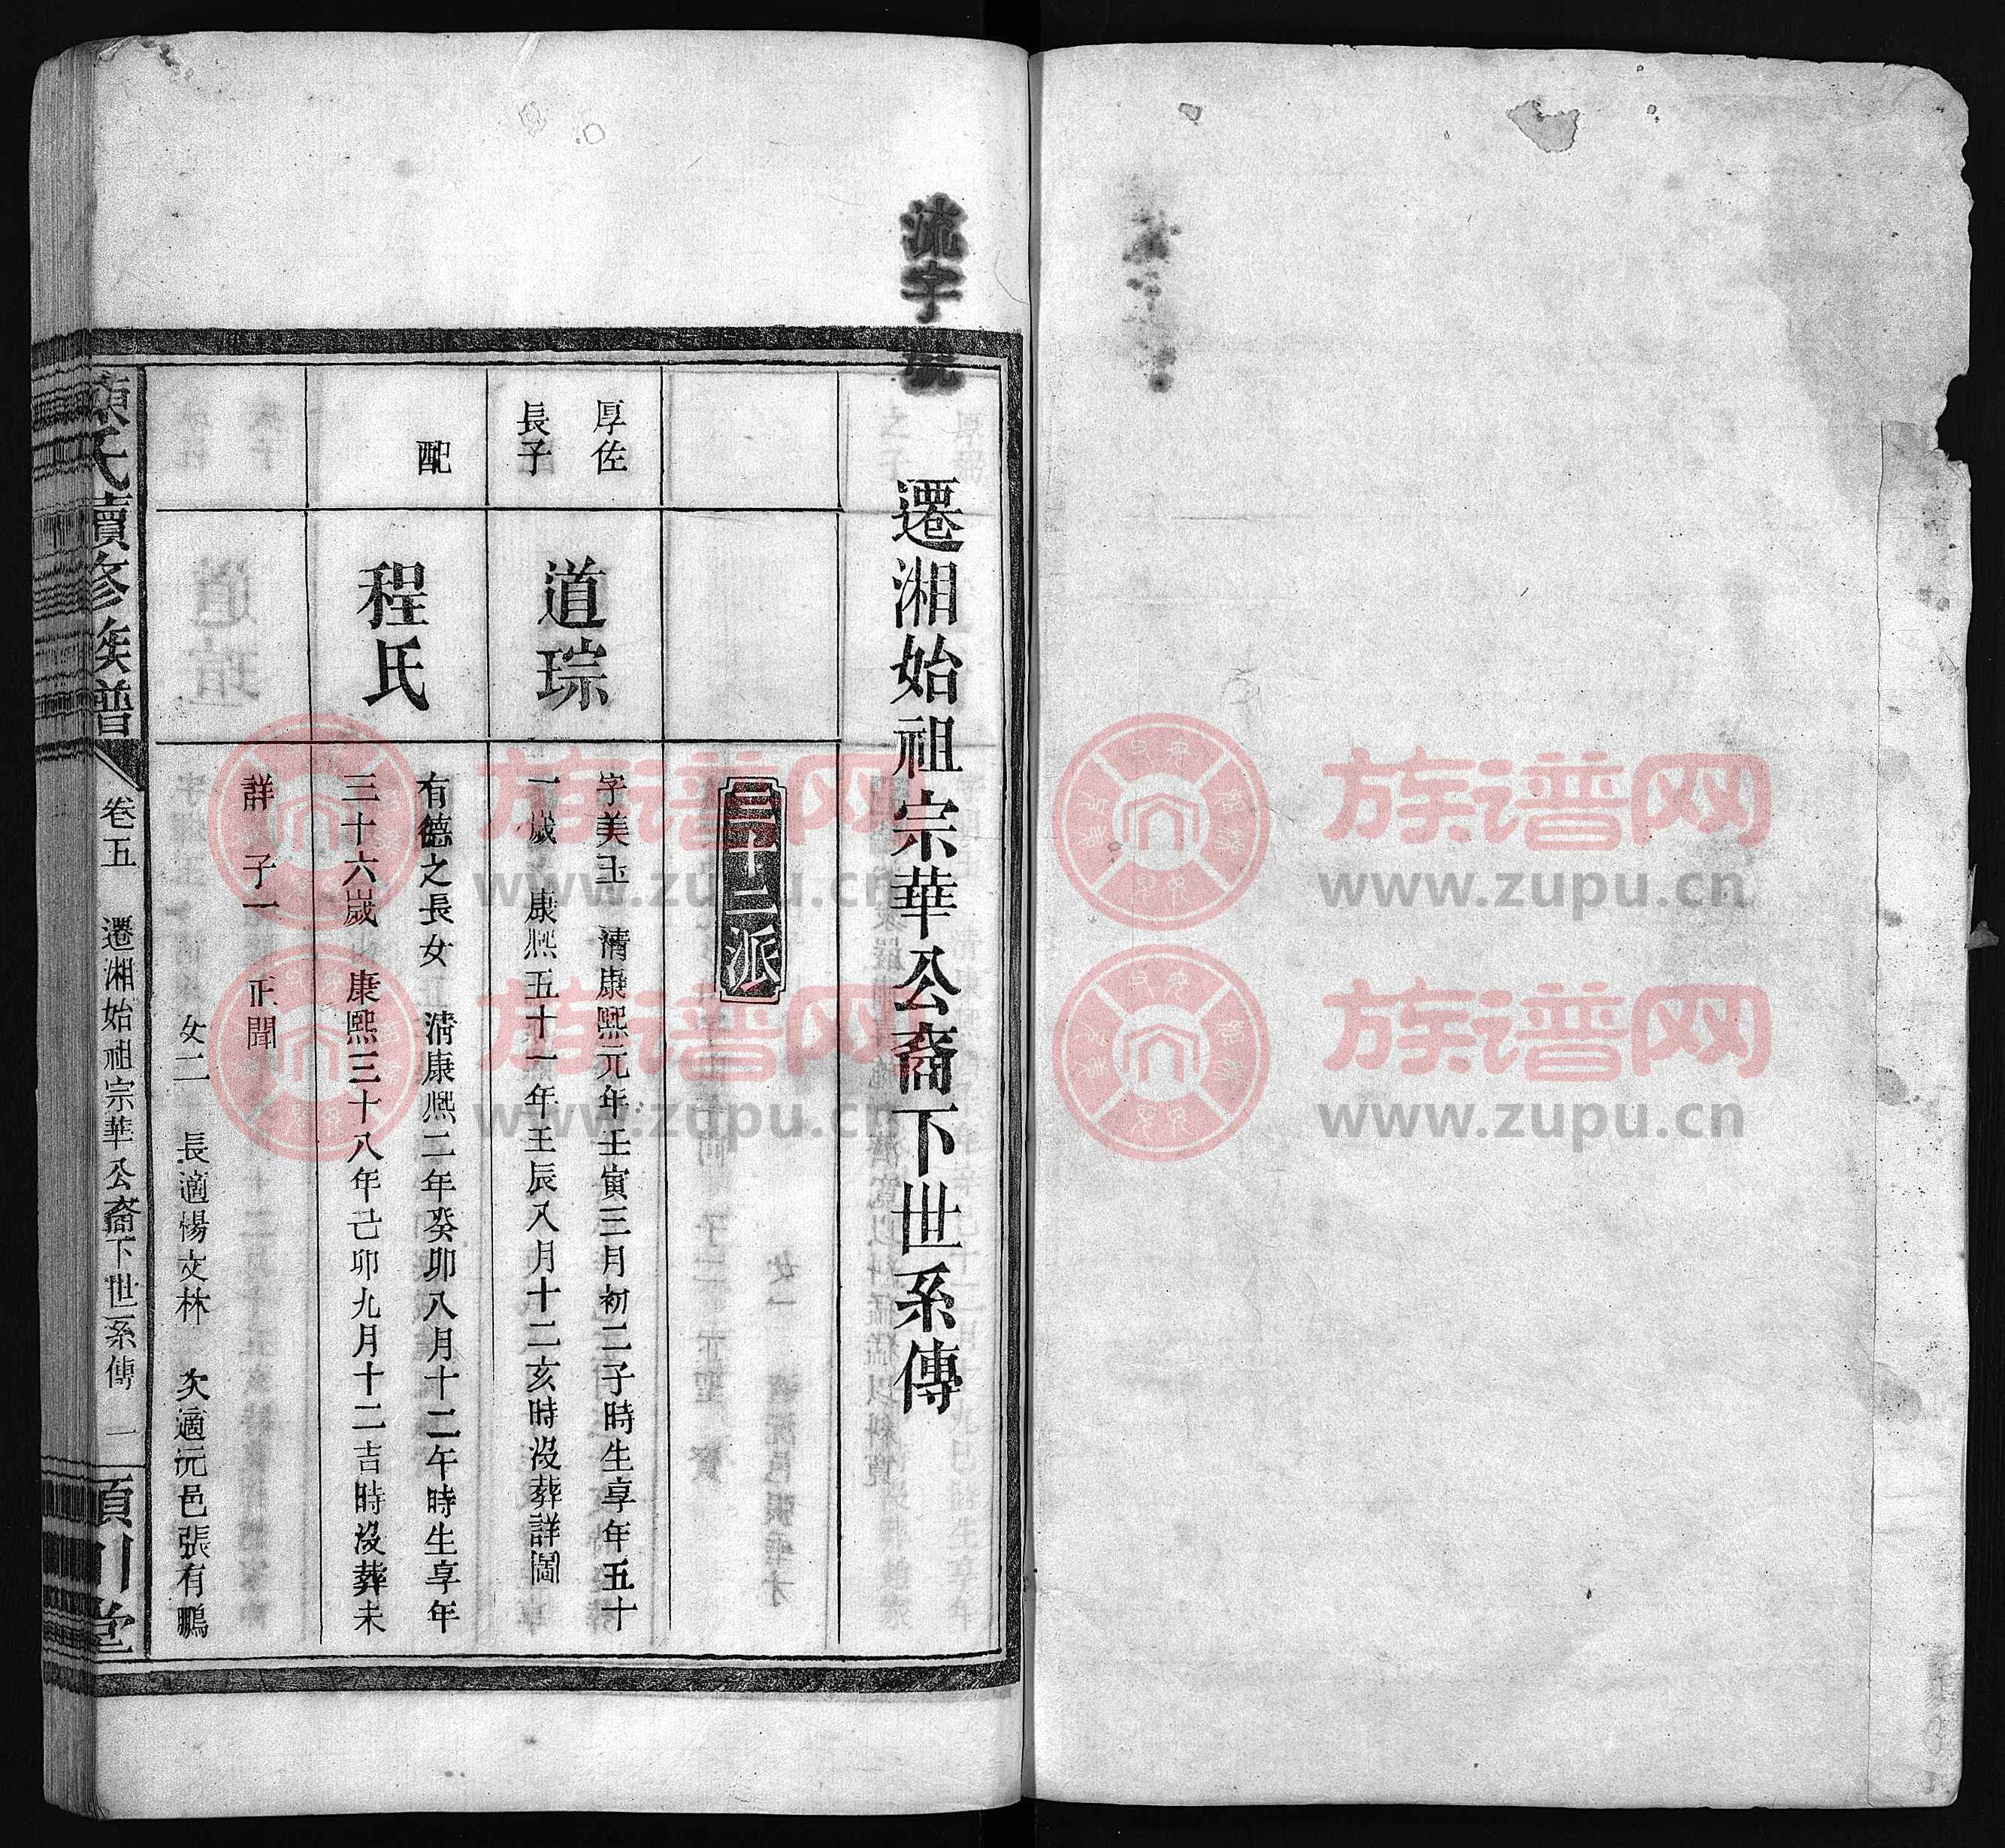 流字號
遷湘始祖宗華公裔下世系傳
三十二派
厚佐
長子
道琮
字美玉 清康熙元年壬寅三月初二子時生享年五十
一歲 康熙五十一年壬辰八月十二亥時沒葬詳圖
配
程氏
有德之長女 清康熙二年癸卯八月十二午時生享年
三十六歲 康熙三十八年己卯九月十二吉時沒葬未
詳 子一 正聞
女二 長適楊文林 次適沅邑張有鵬
陳氏續修族譜
卷五 遷湘始祖宗華公裔下世系傳 一
潁川堂
族谱网
www.zupu.cn
族谱网
www.zupu.cn
族谱网
www.zupu.cn
族谱网
www.zupu.cn